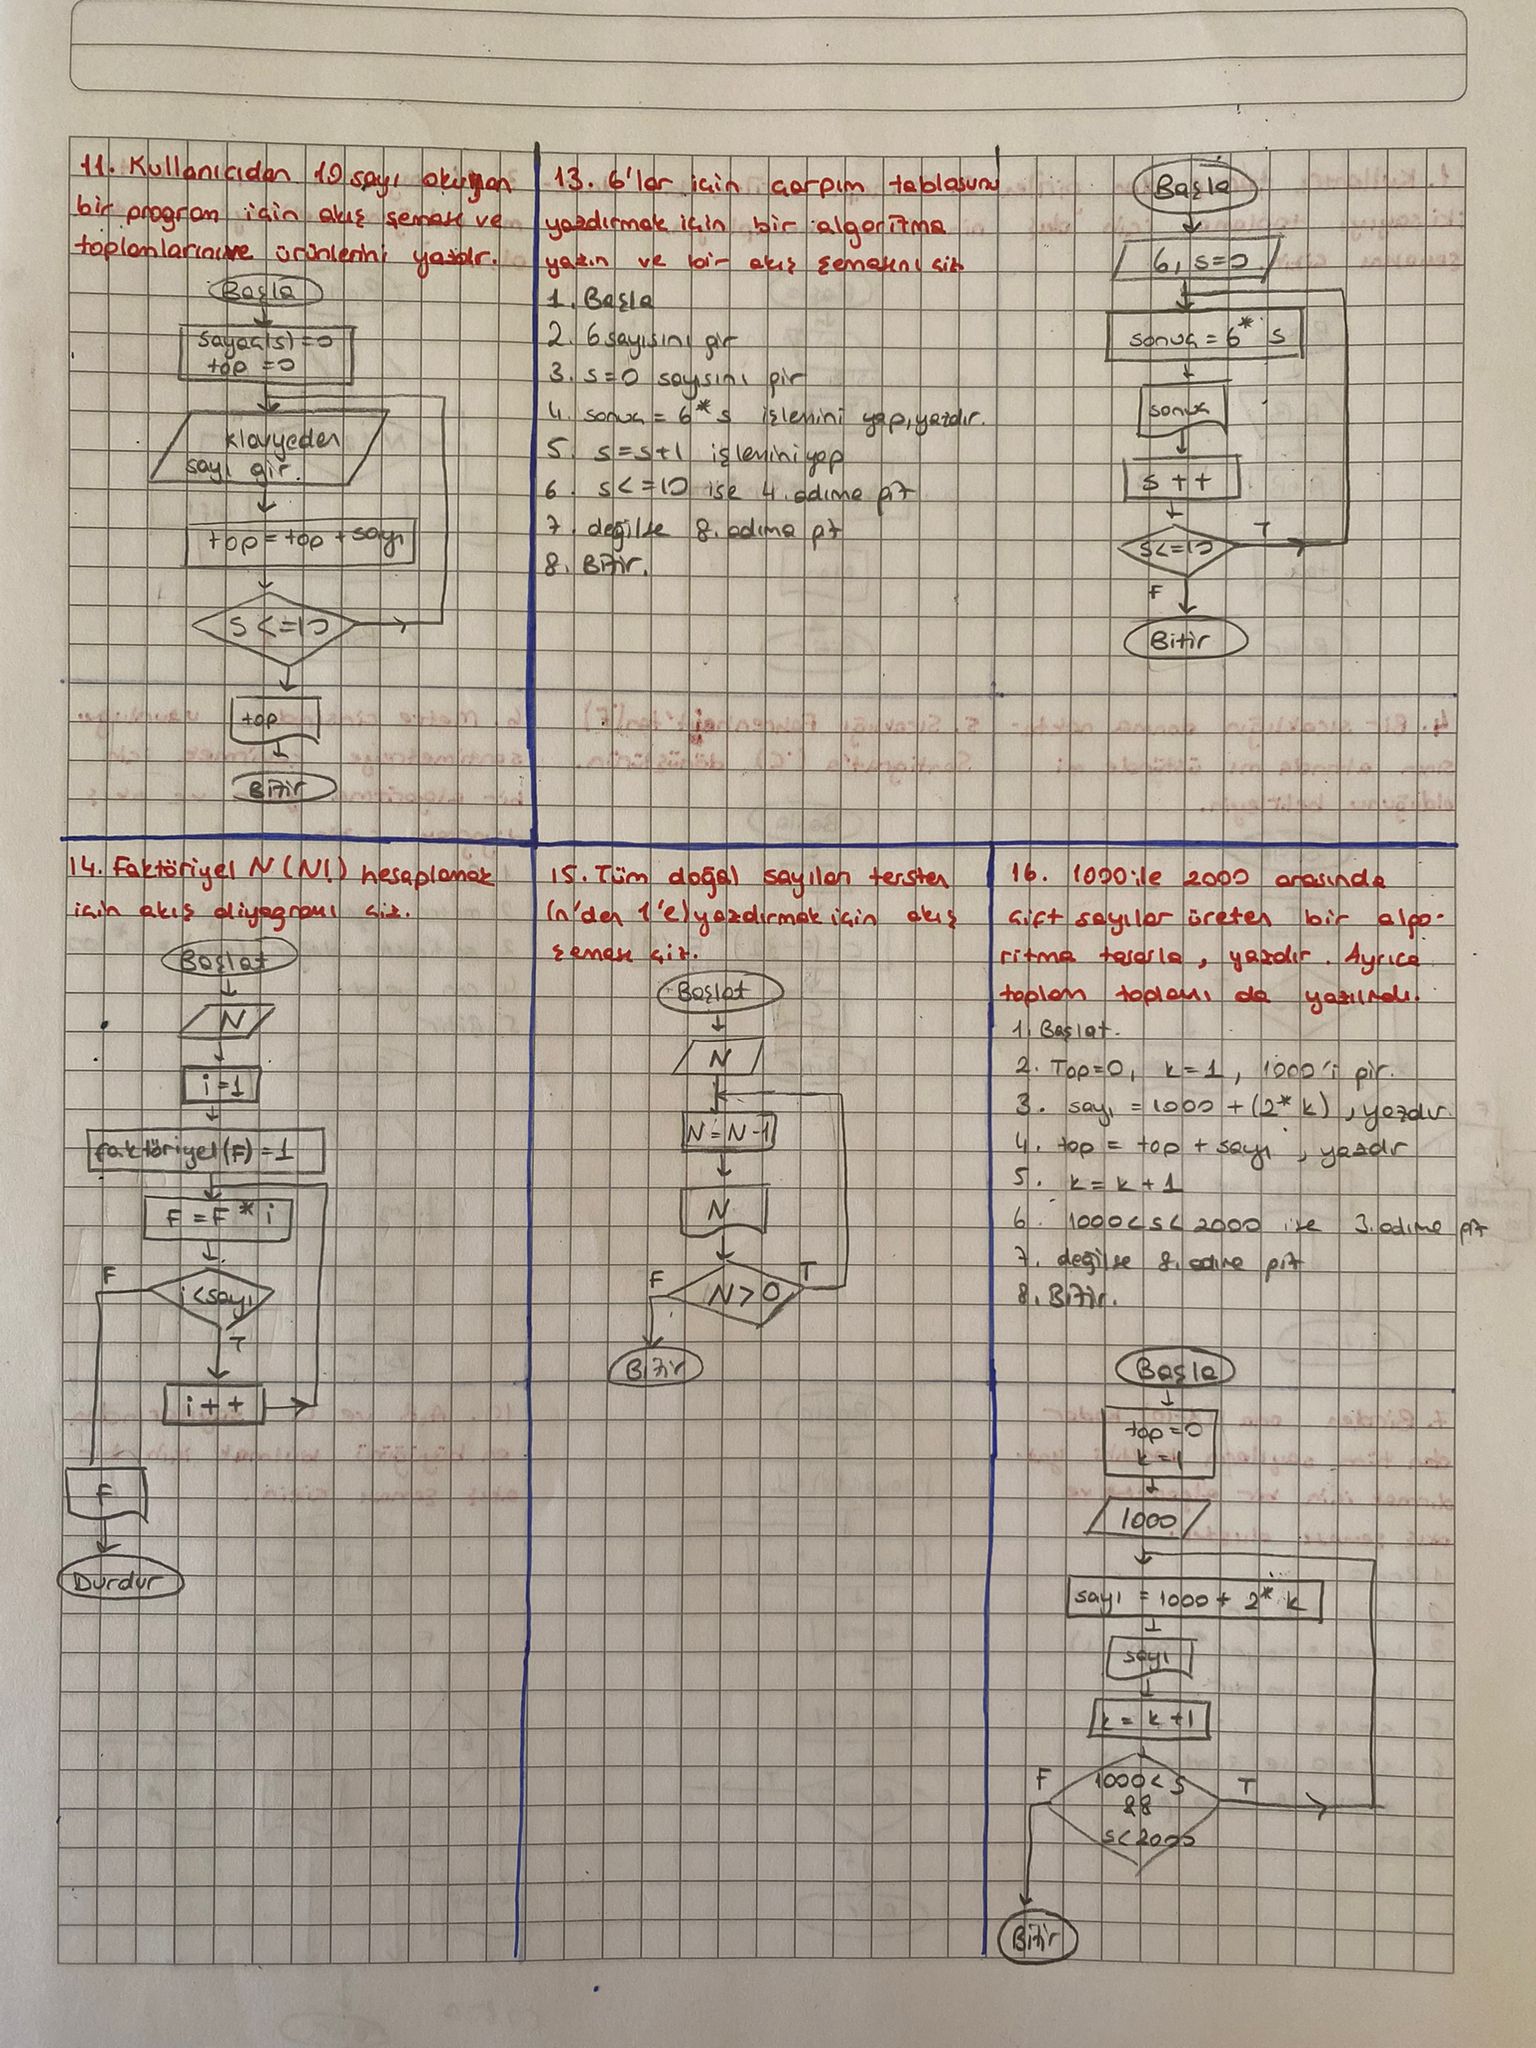 11. Kullanıcıdan 10 sayı okuyan
bir program için akış şeması ve
toplamlarını ve ürünlerini yazdır.
Başla
sayaç(s)=0
top =0
klavyeden
sayı gir.
top=top+sayı
s<=10
top
Bitir
13. 6'lar için çarpım tablosunu
yazdırmak için bir algoritma
yazın ve bir akış şemasını çiz
1. Başla
2. 6 sayısını gir
3. s=0 sayısını gir
4. sonuç = 6*s işlemini yap, yazdır.
5. s=s+1 işlemini yap
6. s<=10 ise 4. adıma git
7. değilse 8. adıma git
8. Bitir.
Başla
6, s=0
sonuç = 6* s
sonuç
s++
s<=10
T
F
Bitir
14. Faktöriyel N (N!) hesaplamak
için akış diyagramı çiz.
Başlat
N
i=1
faktöriyel(F)=1
F=F*i
F
i<sayı
T
i++
F
Durdur
15. Tüm doğal sayıları tersten
(n'den 1'e) yazdırmak için akış
şeması çiz.
Başlat
N
N=N-1
N
F
N>0
T
Bitir
16. 1000 ile 2000 arasında
çift sayılar üreten bir algo-
ritma tasarla, yazdır. Ayrıca
toplam toplamı da yazılmalı.
1. Başlat.
2. Top=0, k=1, 1000'i gir.
3. sayı = 1000 + (2*k), yazdır
4. top = top + sayı, yazdır
5. k=k+1
6. 1000<s<2000 ise 3. adıma git
7. değilse 8. adıma git
8. Bitir.
Başla
top=0
k=1
1000
sayı = 1000 + 2* k
sayı
k= k+1
F
1000<s
&&
s<2000
T
Bitir